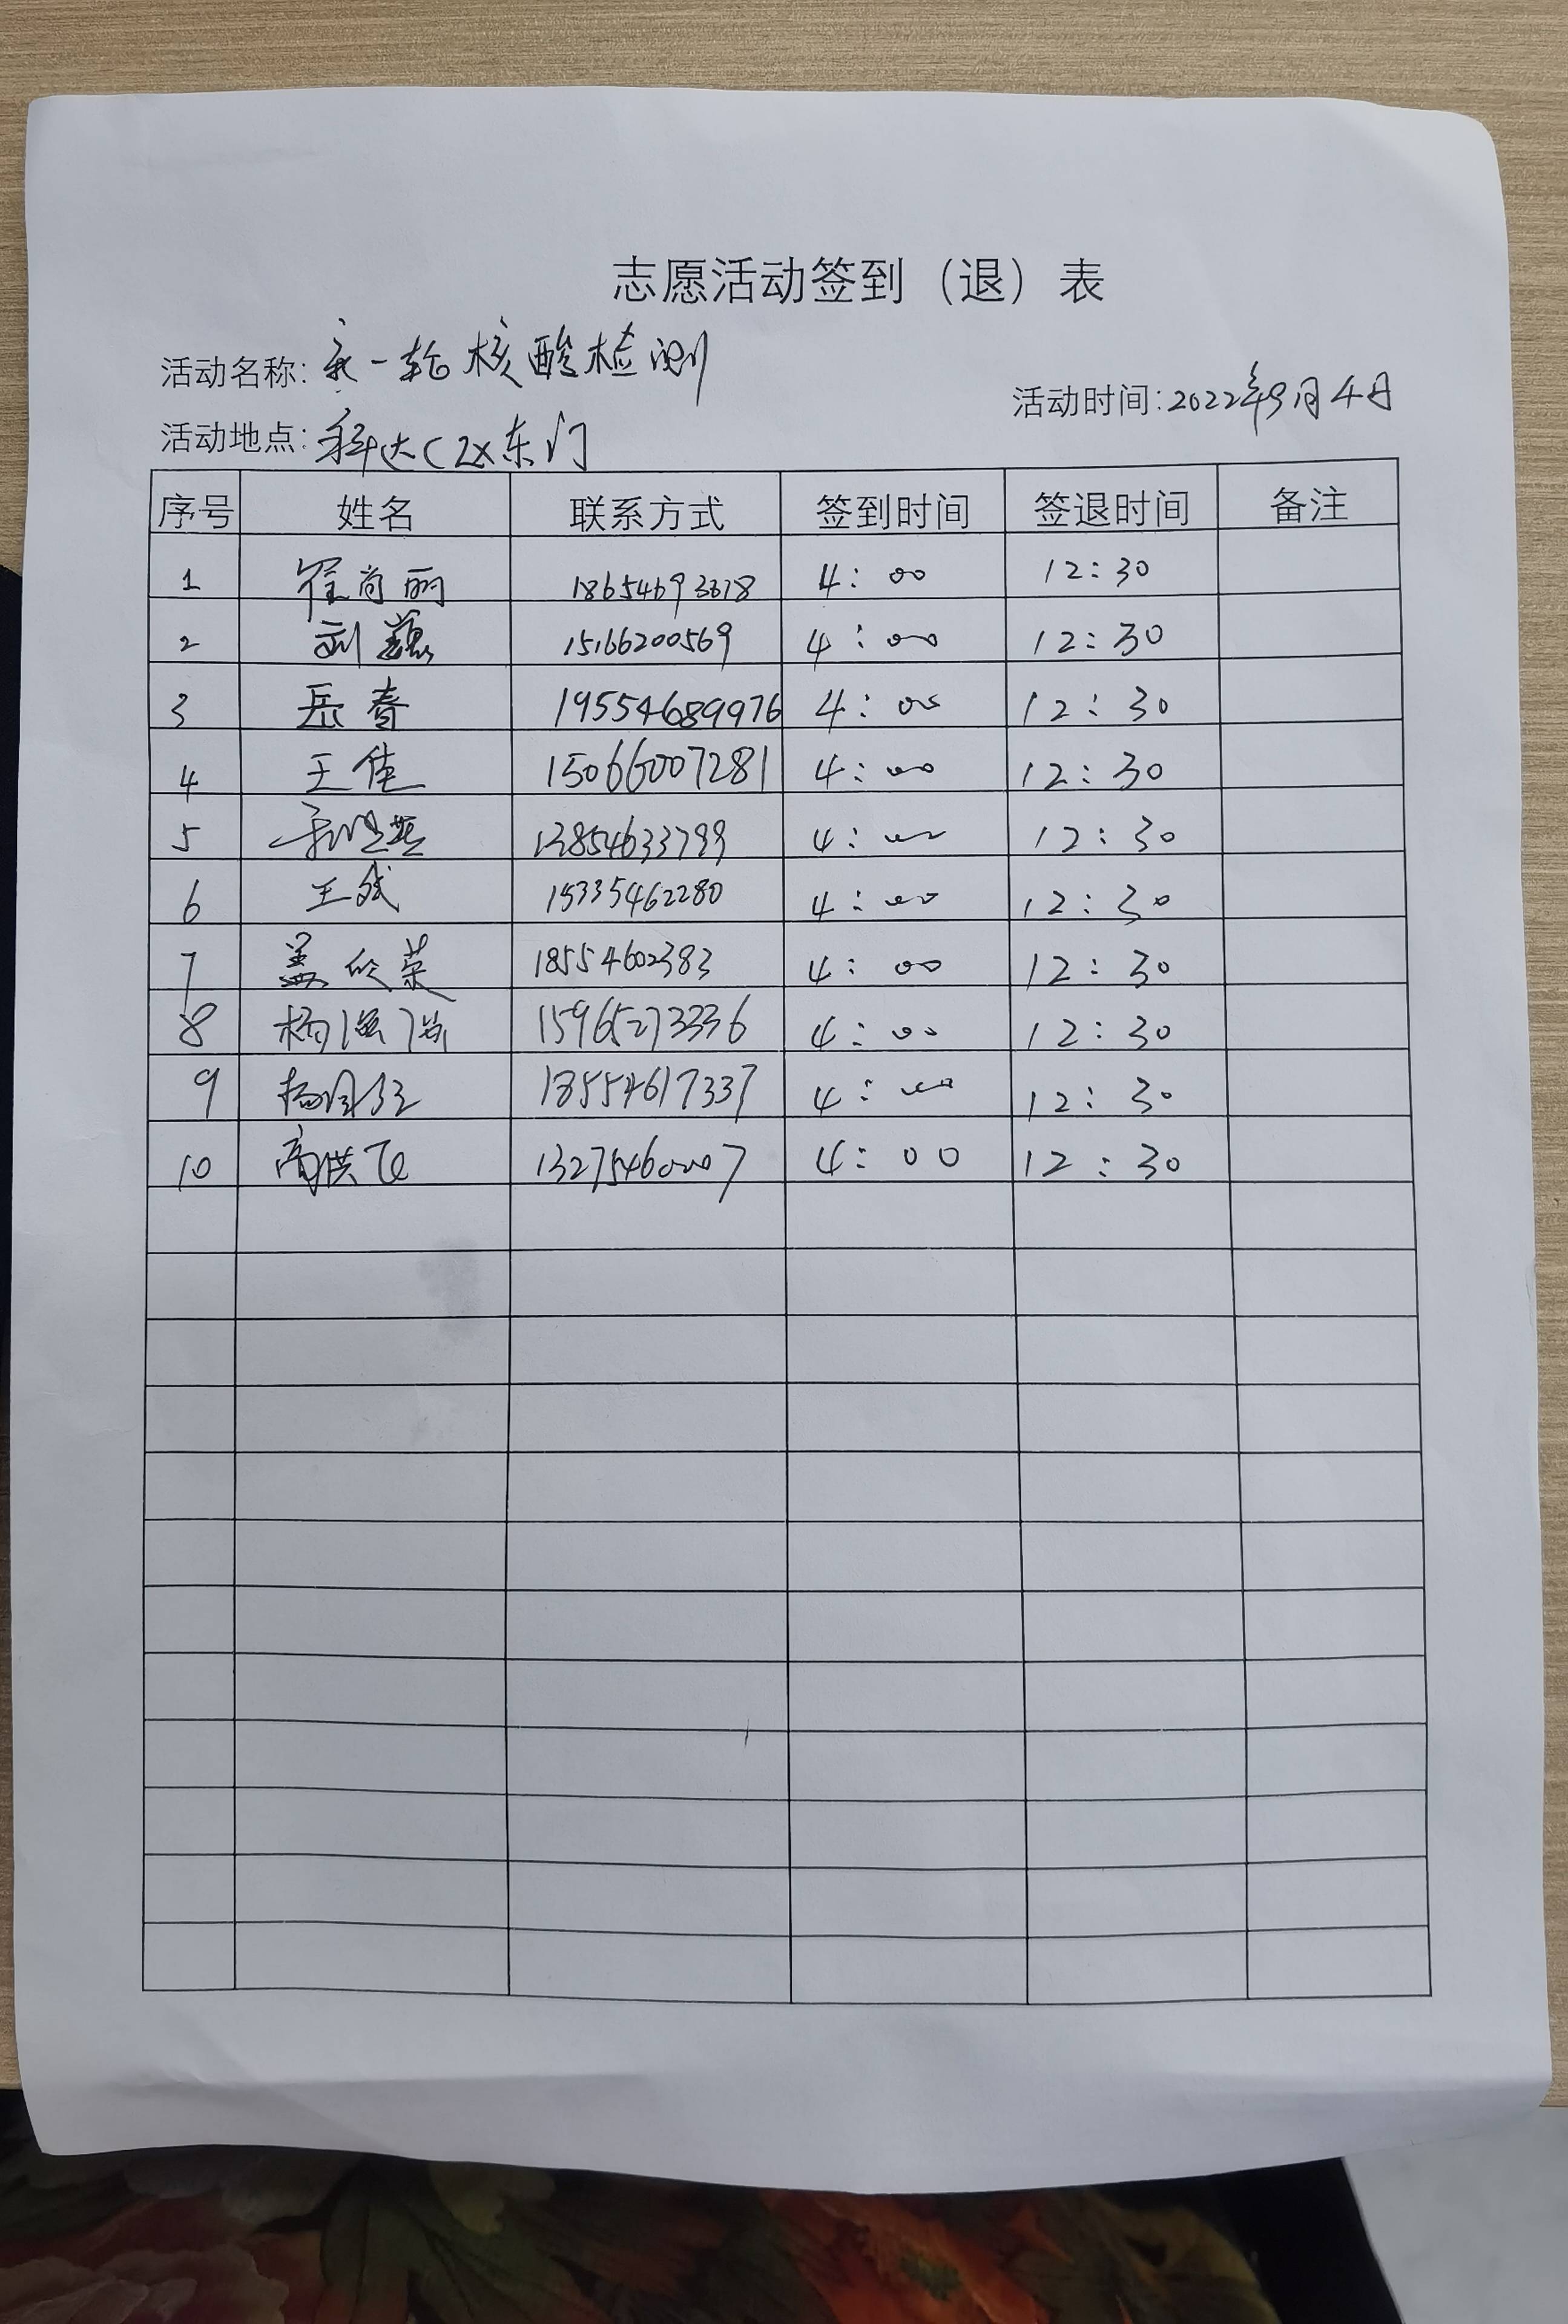 志愿活动签到（退）表
活动名称: 第一轮核酸检测
活动时间: 2022年9月4日
活动地点: 科达C区东门
序号 姓名 联系方式 签到时间 签退时间 备注
1 崔尚丽 18654693678 4:00 12:30
2 刘巍 15166200569 4:00 12:30
3 岳春 19554689976 4:00 12:30
4 王佳 15066007281 4:00 12:30
5 13854633799 4:00 12:30
6 王斌 15335462280 4:00 12:30
7 盖欣荣 18554602383 4:00 12:30
8 杨 15965273336 4:00 12:30
9 杨 18554617337 4:00 12:30
10 高洪飞 13275460007 4:00 12:30